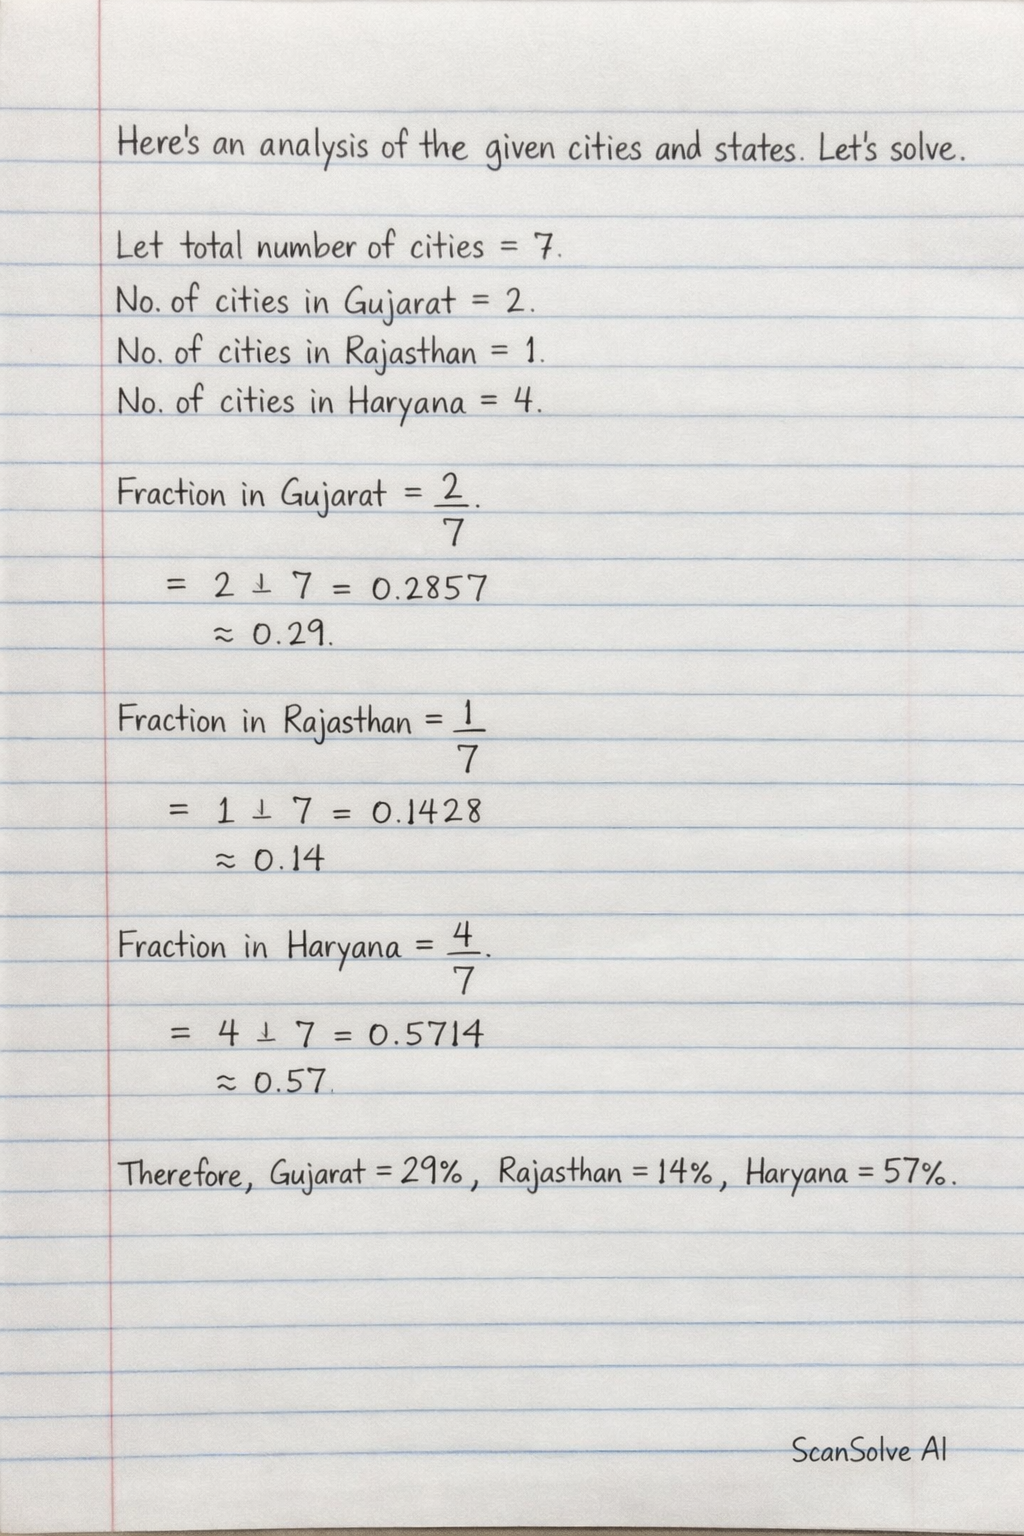 Here's an analysis of the given cities and states. Let's solve.
Let total number of cities = 7.
No. of cities in Gujarat = 2.
No. of cities in Rajasthan = 1.
No. of cities in Haryana = 4.
Fraction in Gujarat = 2/7.
= 2 ⊥ 7 = 0.2857
≈ 0.29.
Fraction in Rajasthan = 1/7
= 1 ⊥ 7 = 0.1428
≈ 0.14
Fraction in Haryana = 4/7.
= 4 ⊥ 7 = 0.5714
≈ 0.57.
Therefore, Gujarat = 29%, Rajasthan = 14%, Haryana = 57%.
ScanSolve AI